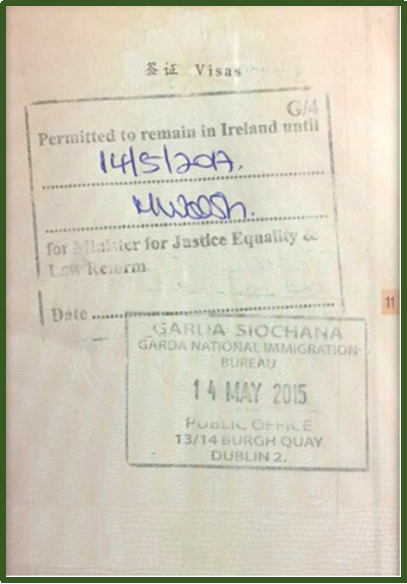 签证 Visas
G/4
Permitted to remain in Ireland until
14/5/2017.
MWalsh.
for Minister for Justice Equality &
Law Reform
Date
11
GARDA SIOCHANA
GARDA NATIONAL IMMIGRATION
BUREAU
14 MAY 2015
PUBLIC OFFICE
13/14 BURGH QUAY
DUBLIN 2.